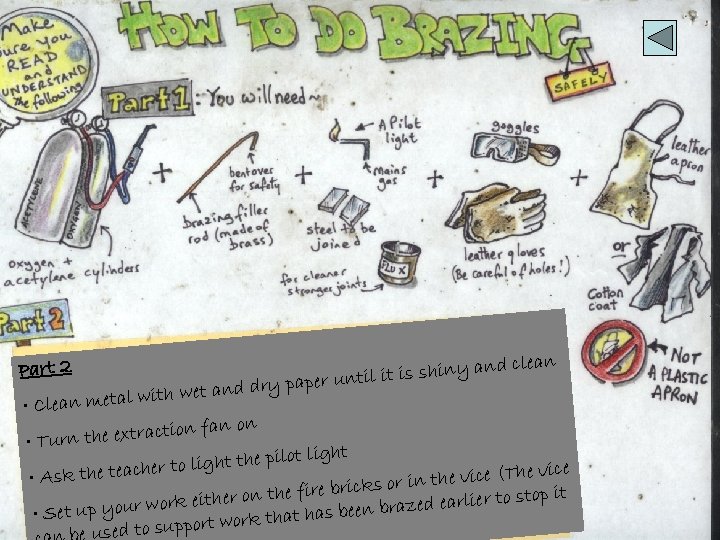 HOW TO DO BRAZING
SAFELY
Make
sure you
READ
and
UNDERSTAND
the following
Part 1 : You will need~
ACETYLENE
OXYGEN
oxygen +
acetylene cylinders
+
bent over
for safety
brazing filler
rod (made of
brass)
+
A Pilot
light
mains
gas
steel to be
joined
for cleaner
stronger joints
FLUX
+
goggles
leather gloves
(Be careful of holes!)
+
leather
apron
or
Cotton
coat
NOT
A PLASTIC
APRON
Part 2
Part 2
• Clean metal with wet and dry paper until it is shiny and clean
• Turn the extraction fan on
• Ask the teacher to light the pilot light
• Set up your work either on the fire bricks or in the vice (The vice
can be used to support work that has been brazed earlier to stop it